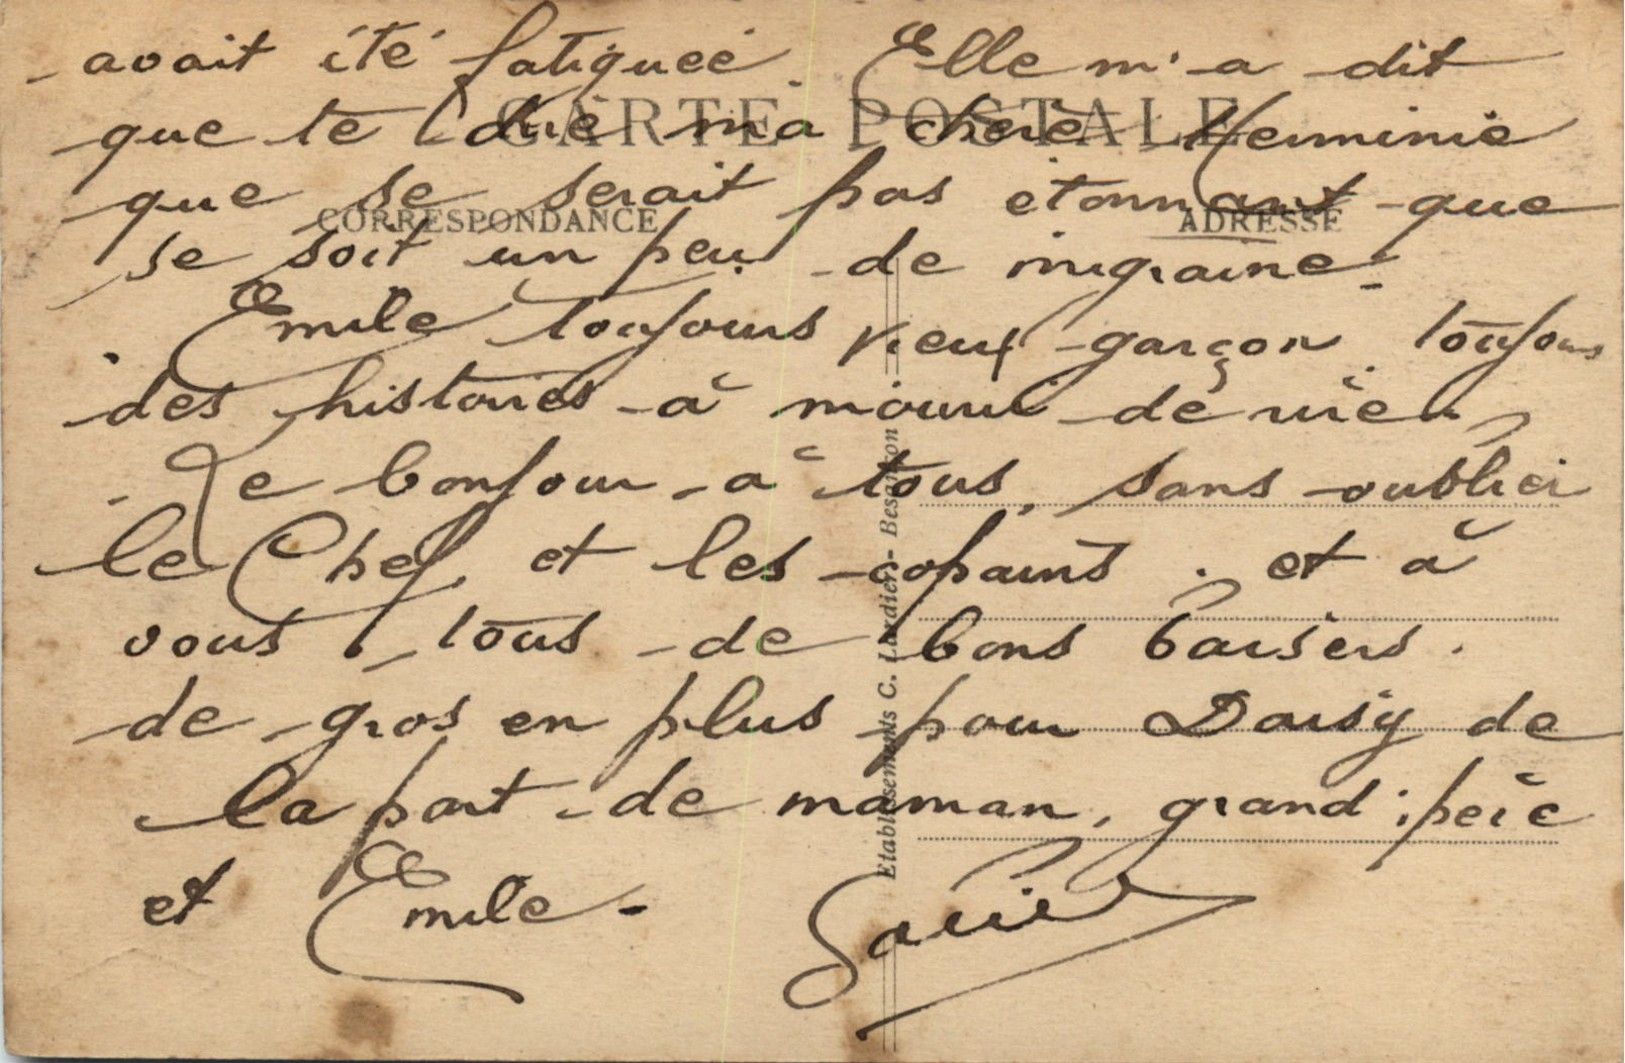 avait été fatiguée. Elle m'a dit
CARTE POSTALE
que te dire ma chère Herminie
que se serait pas etonnant que
CORRESPONDANCE
ADRESSE
se soit un peu de migraine.
Emile toujours vieux garçon. toujours
des histoires à mourir de rire.
Le bonjour à tous, sans oublier
le Chef et les copains. et à
vous tous de bons baisers.
de gros en plus pour Daisy de
la part de maman, grand père
et Emile.
Etablissements C. Lardier - Besançon